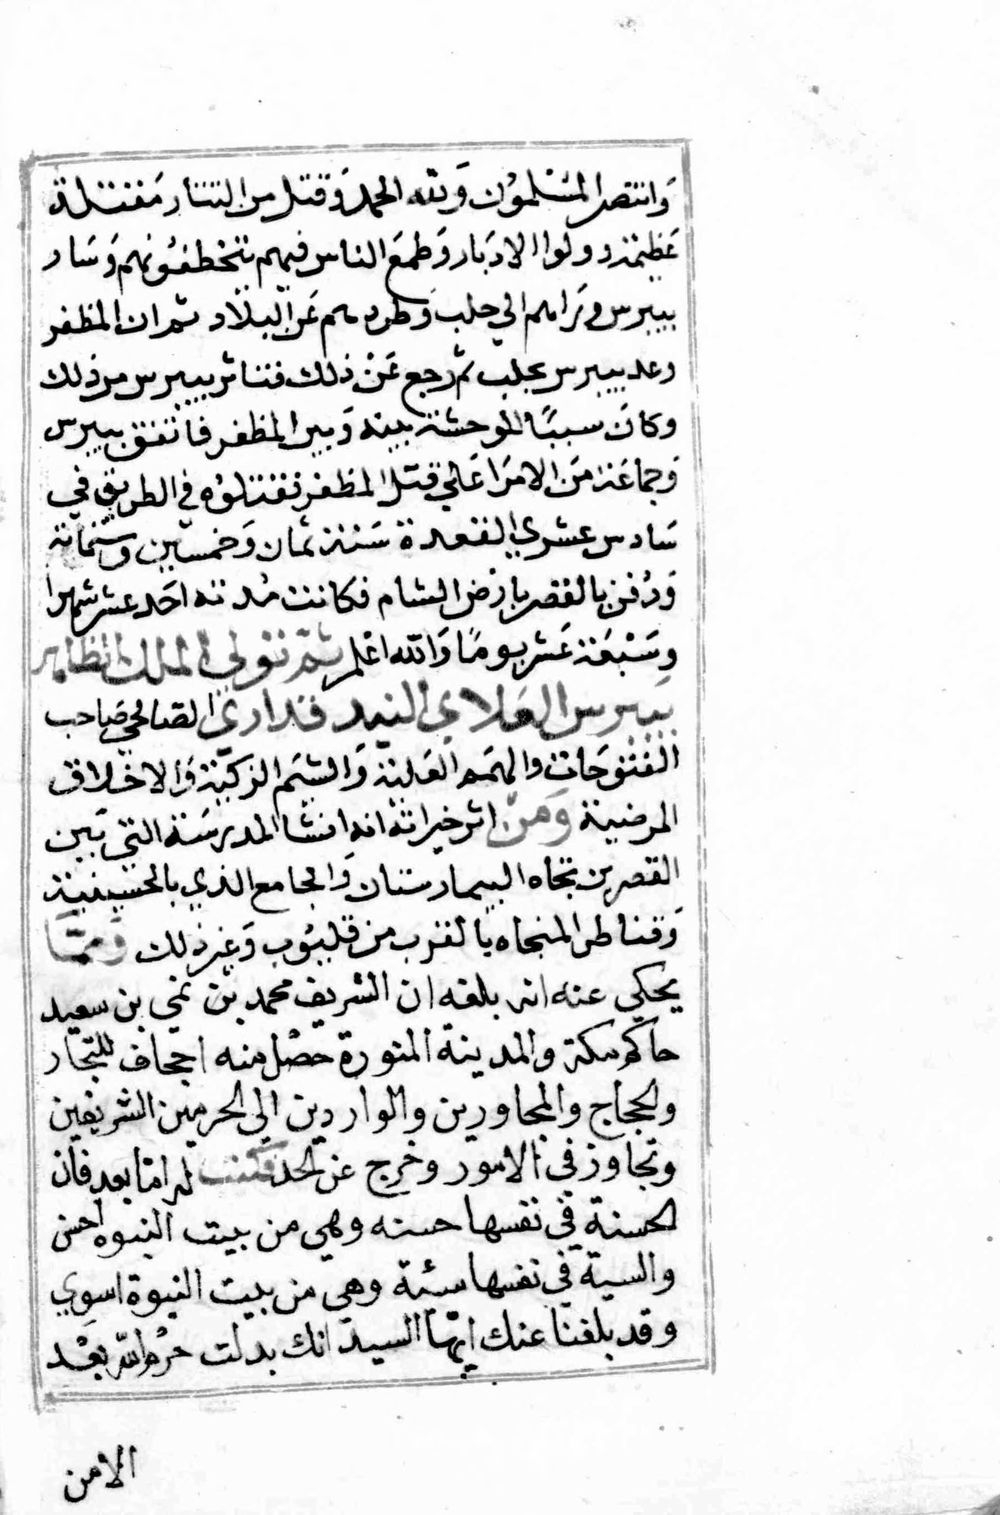 وَانتصر المسْلموُن وَلله الحمد وَقتل من التتار مَقتلة
عَظيمة وولوا الادبَار وَطمعَ الناس فيهم يتخطفوُنهم وَسَار
بيبرس ورَاهم الي حلب وَطردهم عَن البلاد ثم ان المظفر
وعد بيبرس بحلب ثم رَجع عَنْ ذلك فتاثر بيبرس من ذلك
وكانَ سببًا للوحشة بينه وَبين المظفر فاتفق بيبرس
وَجماعَة منَ الامرَا عَلي قتل المظفر فقتلوُه في الطريق في
سَادس عشري القعدة سَنة ثمان وَخمسين وستماية
وَدُفن بالقصر بارْض الشام فكانت مُدته احَد عشر شهرا
وسَبْعَة عَشر يومًا وَالله اعْلم ثم تولي الملك الظاهر
بيبرس العَلاي البندقداري الصالحي صَاحب
الفتوحَات والهمم العَلية وَالشيَم الزكيّة وَالاخلاق
المرضية وَمنْ اثر خيراته انه انشا المدرسَة التي بَين
القصرين تجاه البيمارستان وَالجامع الذي بالحسينية
وَقناطر المنجاه بالقرب من قليوُب وَغير ذلك وَممَّا
يحكي عنه انه بلغه ان الشريف محمد بن نمي بن سعيد
حاكم مكة والمدينة المنورة حصْل منه اجحاف للتجار
والحجاج والمجاورين والواردين الي الحرمين الشريفين
وتجاوز في الامور وخرج عن الحد فكتب له اما بعد فان
الحسنة في نفسها حسنه وهي من بيت النبوه احسن
والسية في نفسها سئة وهي من بيت النبوة اسوي
وقد بلغنا عنك ايها السيد انك بدلت حرم الله بعْد
الامن